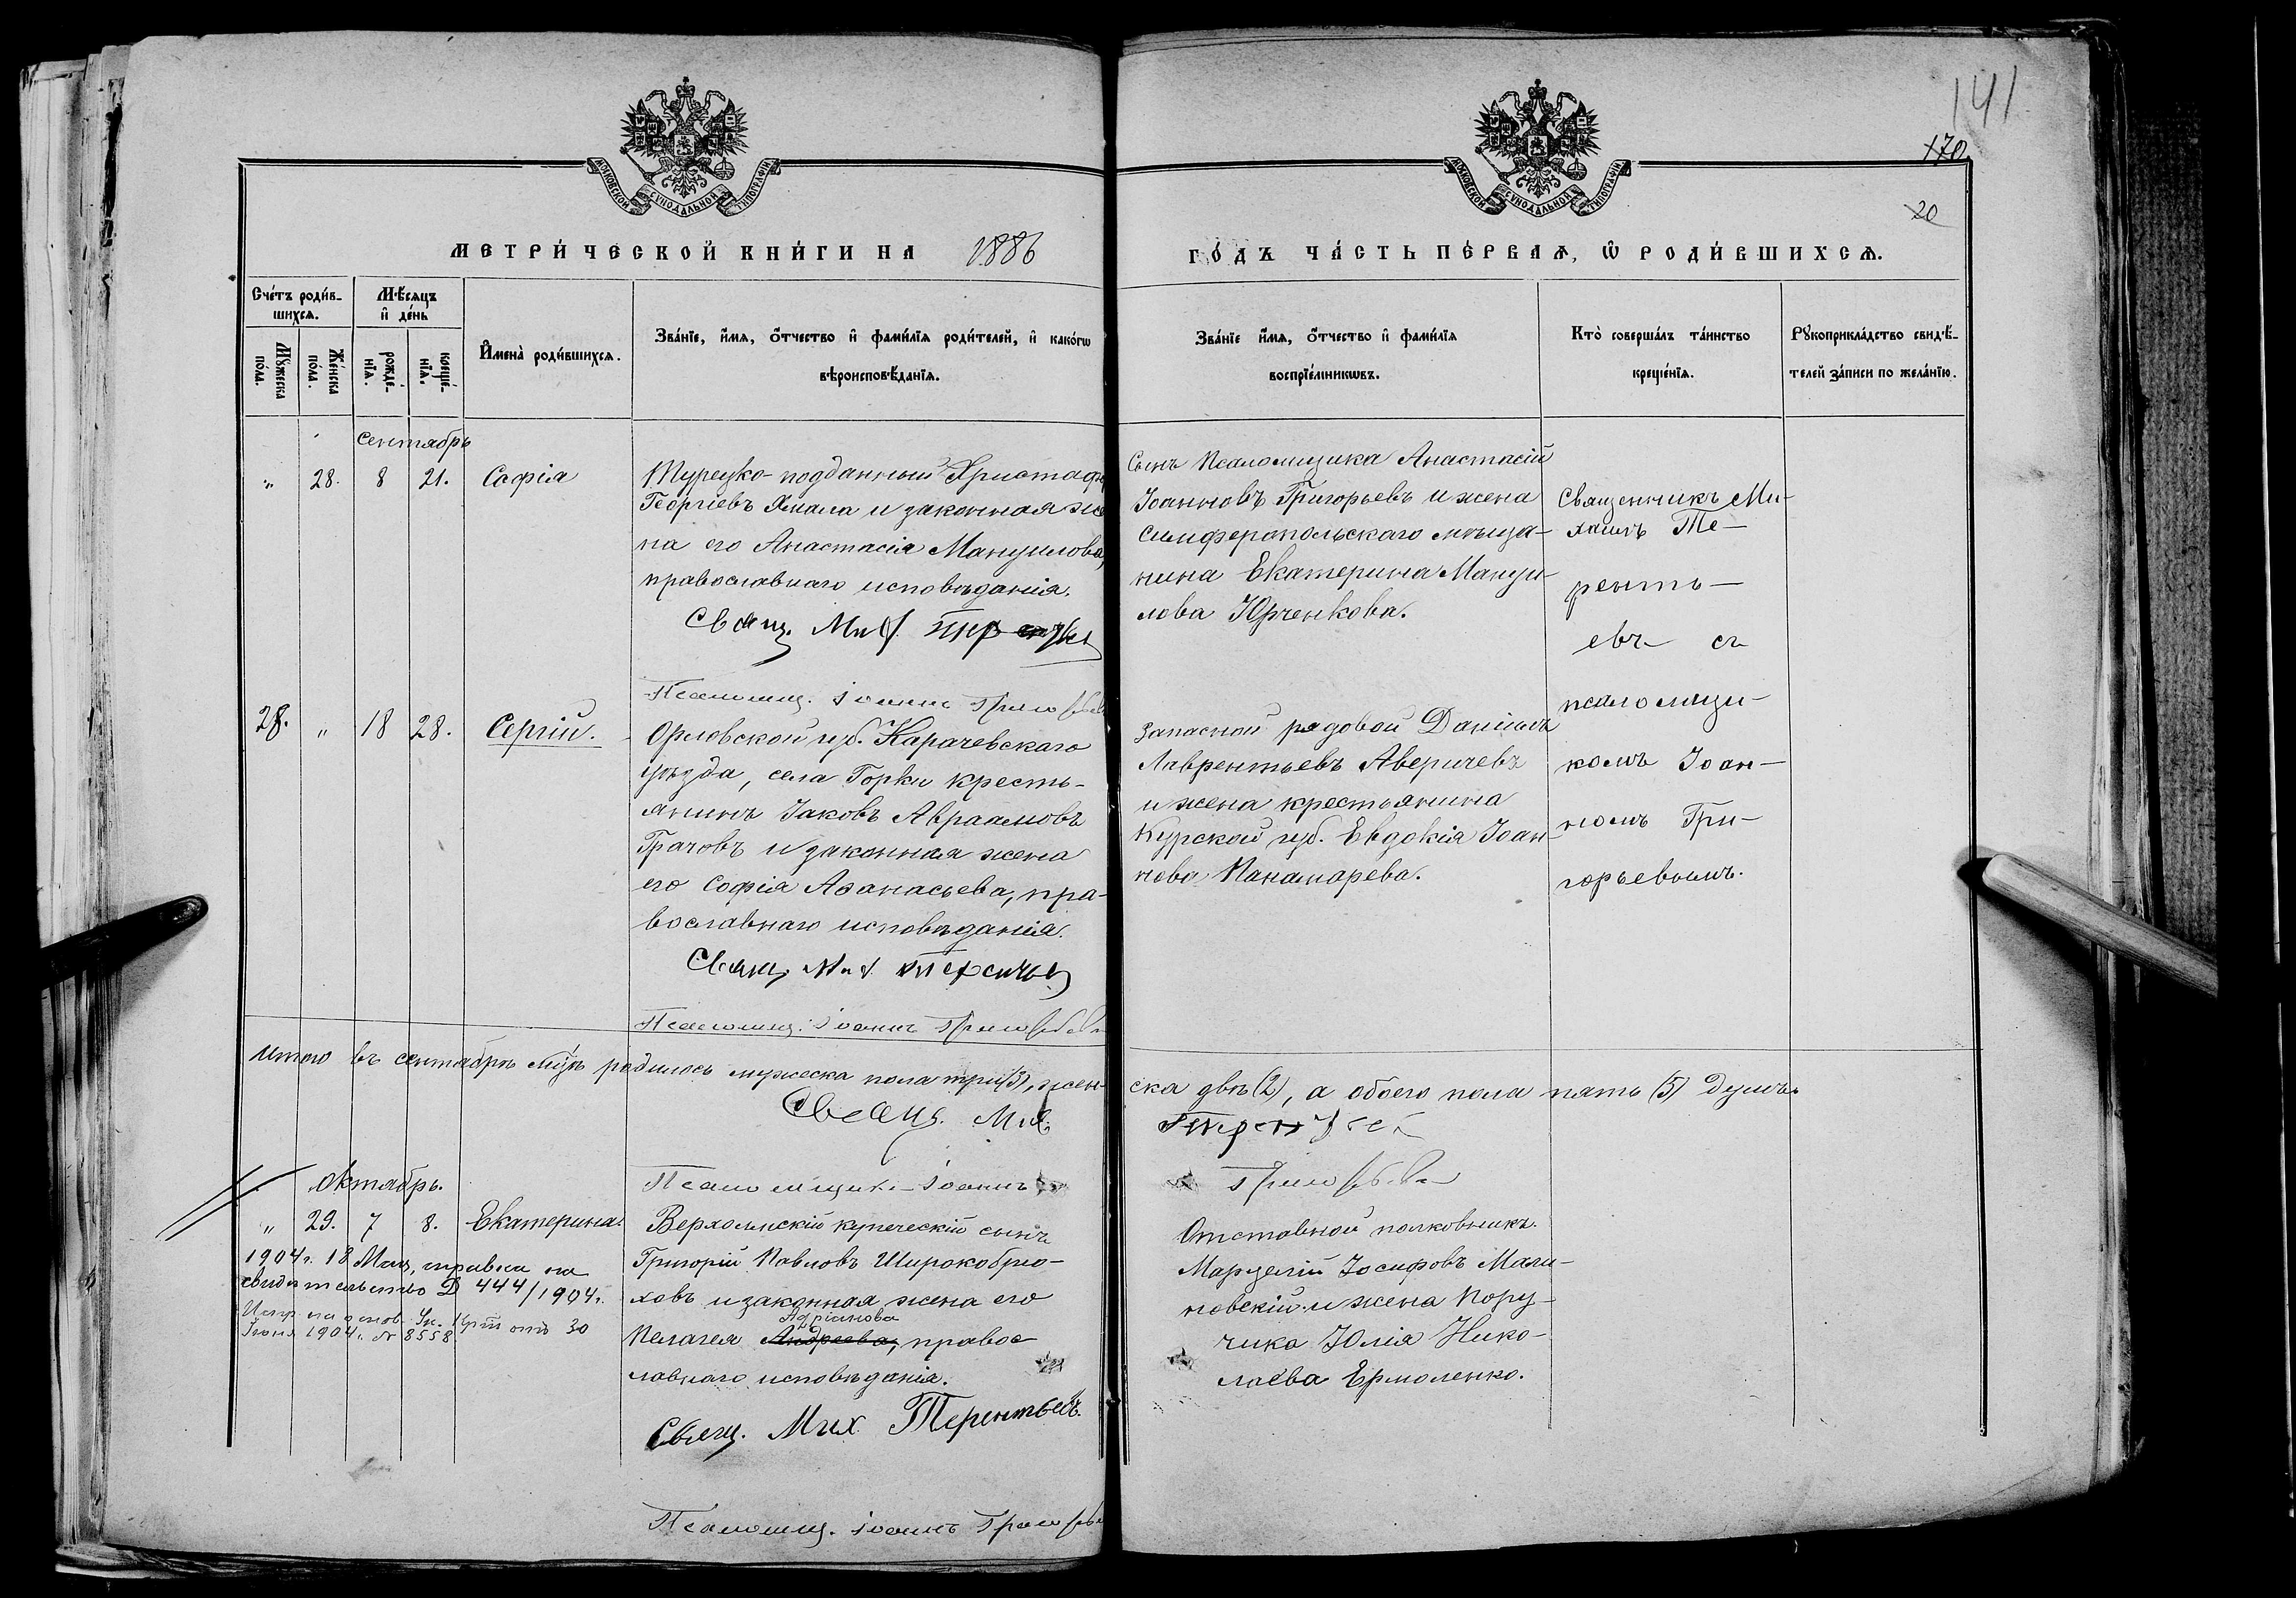 141
170
20
МОСКОВСКОЙ СѴНОДАЛЬНОЙ ТИПОГРАФІИ
МОСКОВСКОЙ СѴНОДАЛЬНОЙ ТИПОГРАФІИ
МЕТРИ́ЧЕСКОЙ КНИ́ГИ НА 1886
ГО́ДЪ ЧА́СТЬ ПЕ́РВАѦ, Ѡ҆ РОДИ́ВШИХСѦ.
Сче́тъ роди́в-
шихсѧ.
Мꙋ́жеска по́ла.
Же́нска по́ла.
Мѣ́сѧцъ
и҆ де́нь
рожде́-нїѧ.
креще́-нїѧ.
И҆мена̀ роди́вшихсѧ.
Зва́нїе, и҆́мѧ, ѻ҆́тчество и҆ фами́лїѧ роди́телей, и҆ како́гѡ
вѣроисповѣ́данїѧ.
Зва́нїе и҆́мѧ, ѻ҆́тчество и҆ фами́лїѧ
воспрїе́мникѡвъ.
Кто̀ соверша́лъ та́инство
креще́нїѧ.
Рꙋкоприкла́дство свидѣ́-
телей за́писи по жела́нїю.
сентябрь
" 28. 8 21. Софія
Турецко-подданный Христофор
Георгіевъ Ямала и законная же
на его Анастасія Мануилова,
православнаго исповѣданія.
Свящ. Мих.
Псаломщ. Іоаннъ Григорьевъ
Сынъ Псаломщика Анастасій
Іоанновъ Григорьевъ и жена
Симферопольскаго мѣща-
нина Екатерина Мануи-
лова Юрченкова.
Священникъ Ми-
хаилъ Те-
ренть-
евъ съ
псаломщи-
комъ Іоан-
номъ Гри-
горьевымъ.
28. " 18 28. Сергій.
Орловской губ. Карачевскаго
уѣзда, села Горки кресть-
янинъ Іаковъ Авраамовъ
Грачовъ и законная жена
его Софія Аѳанасьева, пра-
вославнаго исповѣданія.
Свящ. Мих. Терентьев
Псаломщ. Іоаннъ Григорьевъ
Запасной рядовой Даніилъ
Лаврентьевъ Аверичевъ
и жена крестьянина
Курской губ. Евдокія Іоан-
нова Панамарева.
Итого въ сентябрѣ мцѣ родилось мужеска пола три (3), жен-
ска двѣ (2), а обоего пола пять (5) душъ.
Свящ. Мих.
Терентьев
Псаломщикъ Іоаннъ
Григорьевъ
Октябрь.
" 29. 7 8. Екатерина.
1904 г. 18 Мая, справка на
свидѣтельство Д 444/1904 г.
Испр. на основ. Ук. отъ 30
Іюня 1904 г. № 8558
Верхольнскій купеческій сынъ
Григорій Павловъ Широкобрю-
ховъ и законная жена его
Адріанова
Пелагея Андреева, правос
лавнаго исповѣданія.
Свящ. Мих. Терентьевъ.
Псаломщ. Іоаннъ Григорьев
Отставной полковникъ
Марцелій Іосифовъ Мали-
новскій и жена пору-
чика Юлія Нико-
лаева Ермоленко.